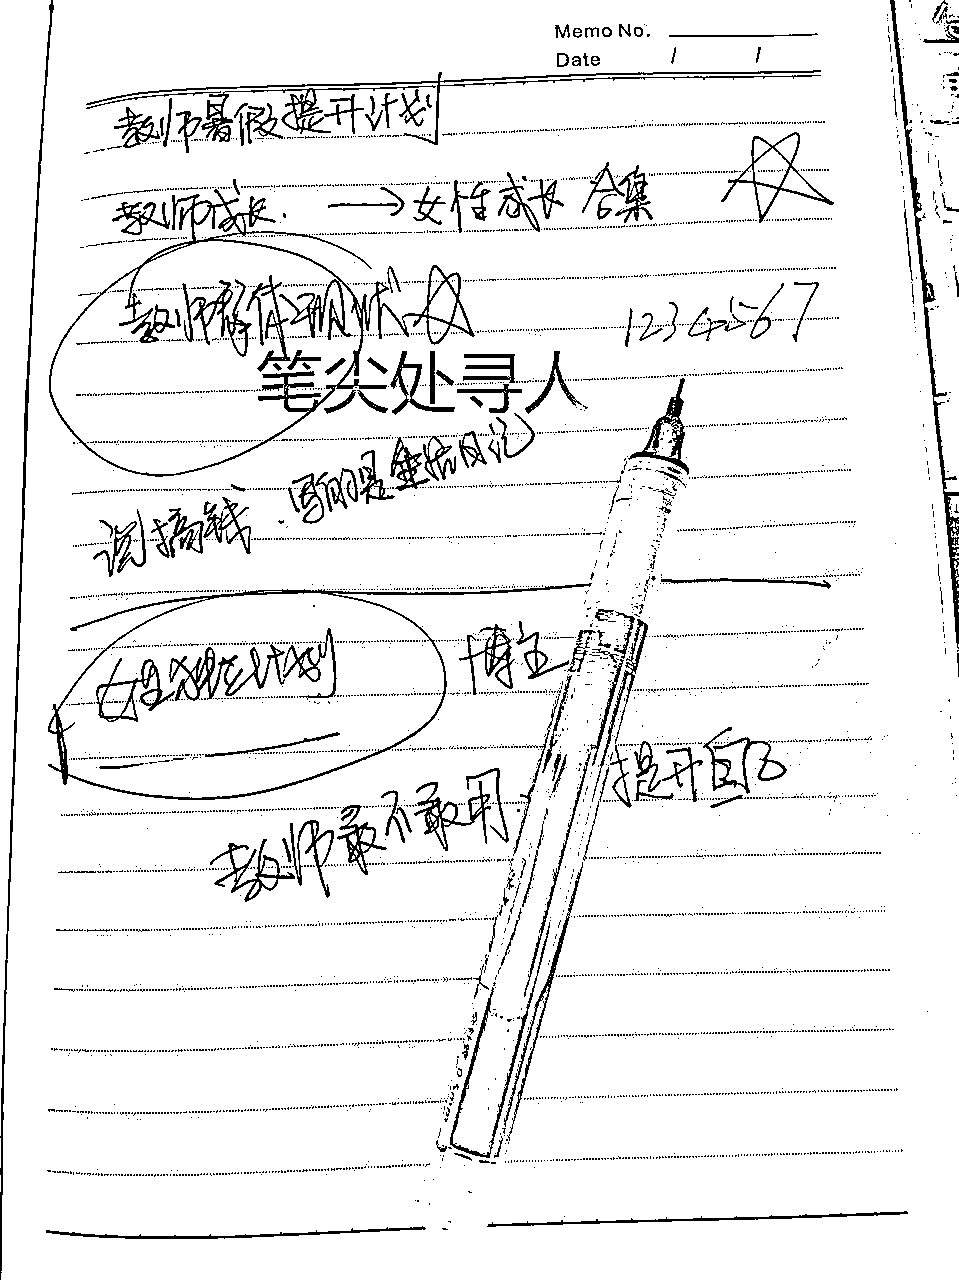 Memo No.
Date / /
教师暑假提升计划
教师成长. → 女性成长 合集
教师解体现状
1234567
笔尖处寻人
说搞钱. 写的是生活日记
女生独立计划 博主
教师敢不敢用: 提升自己